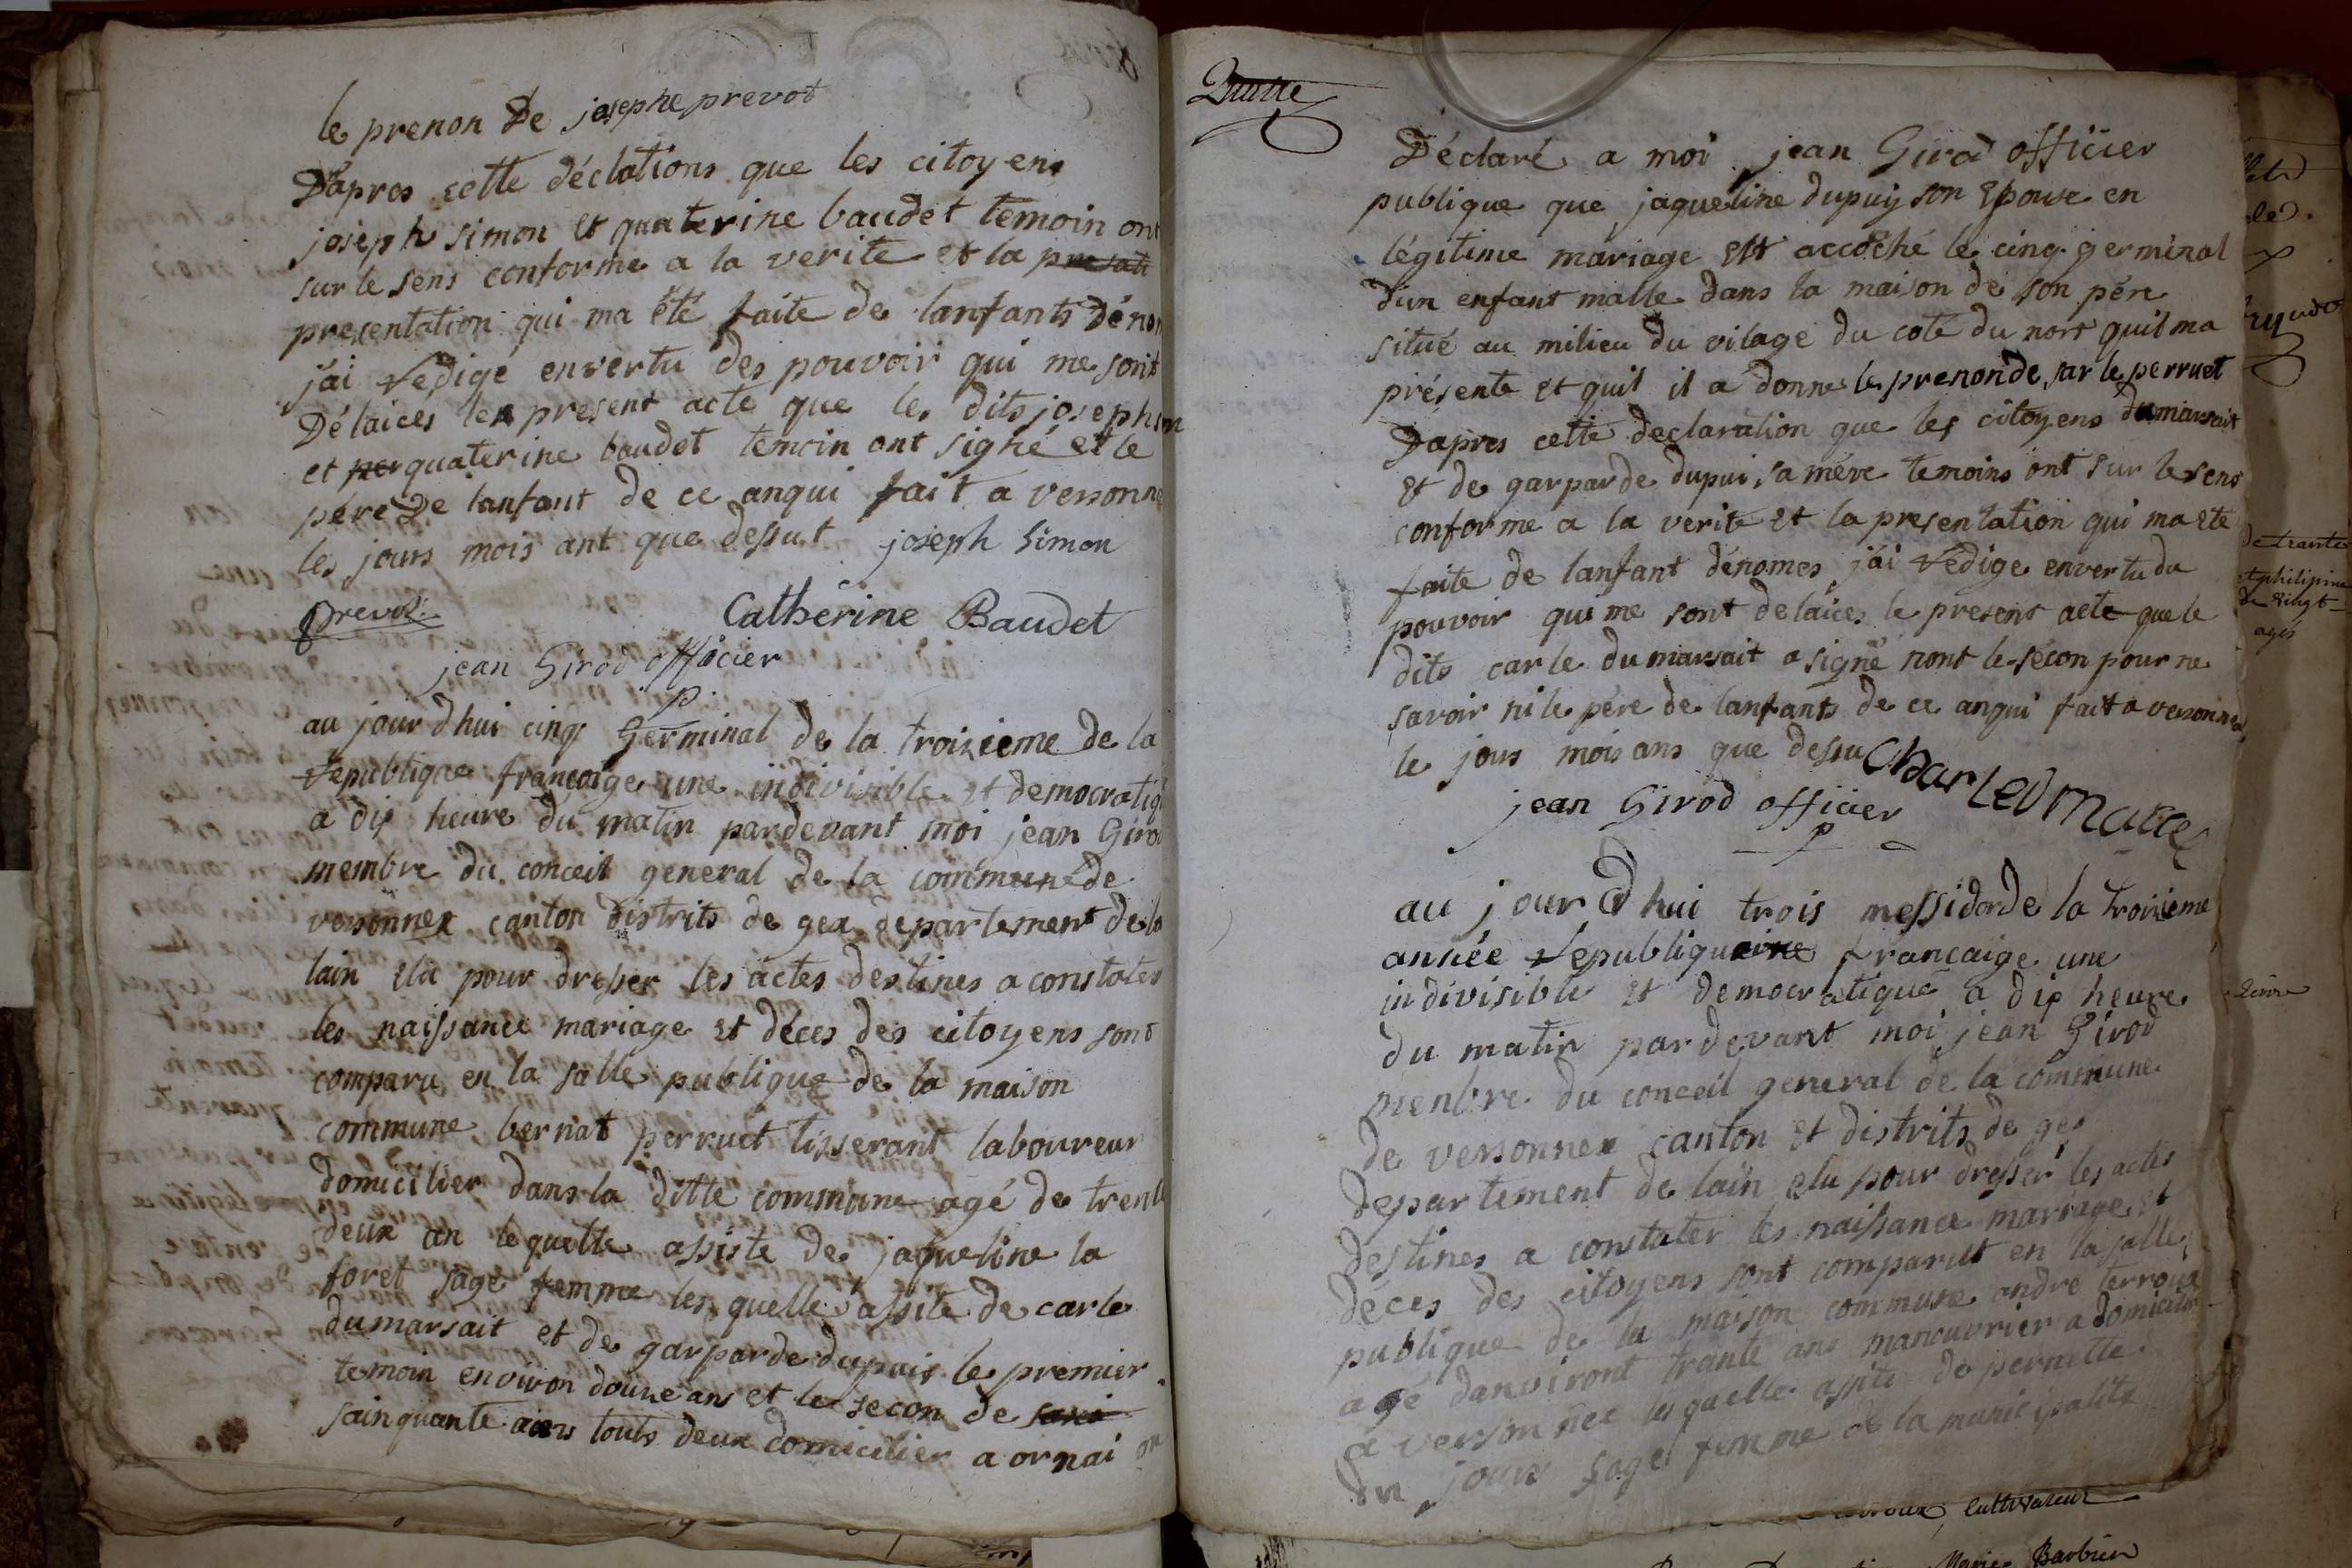 le prenon De josephe prevot
D'apres cette déclations que les citoyens
joseph simon et quaterine baudet temoin ont
sur le sens conforme a la verite et la presati
presentation qui ma été faite de lanfants déno
j'ai redigé envertu des pouvoir qui me sont
Délaices le present acte que les dits joseph
et per quaterine baudet temoin ont signé et le
pére De lanfant de ce anqui fait a versonne
les jours mois ant que dessut joseph Simon
prevot
Catherine Baudet
jean Girod officier
p
au jour d'hui cinq Germinal de la troizieme de la
republique francaige une indivisible et democratiq
a dix heure du matin pardevant moi jean Giro
membre du conceil general de la commune de
versonnex canton distrits de gex departement de la
lain elu pour dresser les actes destines a constater
les naissance mariage et déces des citoyens sont
comparu en la salle publique de la maison
commune bernat perruet tisserant laboureur
domicilier dans la ditte commune agé de trent
deux an le quelle assiste de jaqueline la
foret sage femme les quelle assite de carle
dumarsait et de garparde dupuis le premier
temoin environ douze ans et le secon de
sainquante ans touts deux domicilier a ornai
Déclaré a moi jean Girod officier
publique que jaqueline dupuy son epouse en
légitime mariage est accoché le cinq germinal
d'un enfant malle dans la maison de son pére
situé au milieu du vilage du coté du nort quil ma
présente et quil il a donne le prenon de sarle perruet
D'apres cette declaration que les citoyens dumarsait
et de garparde dupui sa mére temoins ont sur le sens
conforme a la verite et la presentation qui ma ete
faite de lanfant dénomes j'ai redige envertu du
pouvoir qui me sont delaices le present acte que le
dits carle dumarsait a signé nont le sécon pour ne
savoir ni le pére de lanfants de ce anqui fait a versonnex
le jous mois ans que dessu Charle
jean Girod officier
p
au jour d'hui trois messidor de la troizieme
année republiquaine francaige une
indivisible et democratique a dix heure
du matin pardevant moi jean Girod
menbre du conceil general de la commune
de versonnex canton et distrits de gex
departement de lain elu pour dresser les actes
destines a constater les naissance mariage et
déces des citoyens sont comparut en la salle
publique de la maison commune andre terroux
agé danviront trante ans manouvrier a domicilie
a versonnee les quelle assite de pernette
du jour sage femme de la municipalite
de trante
et philipine
de vihgt
agés
cultivateur
Marie Barbier